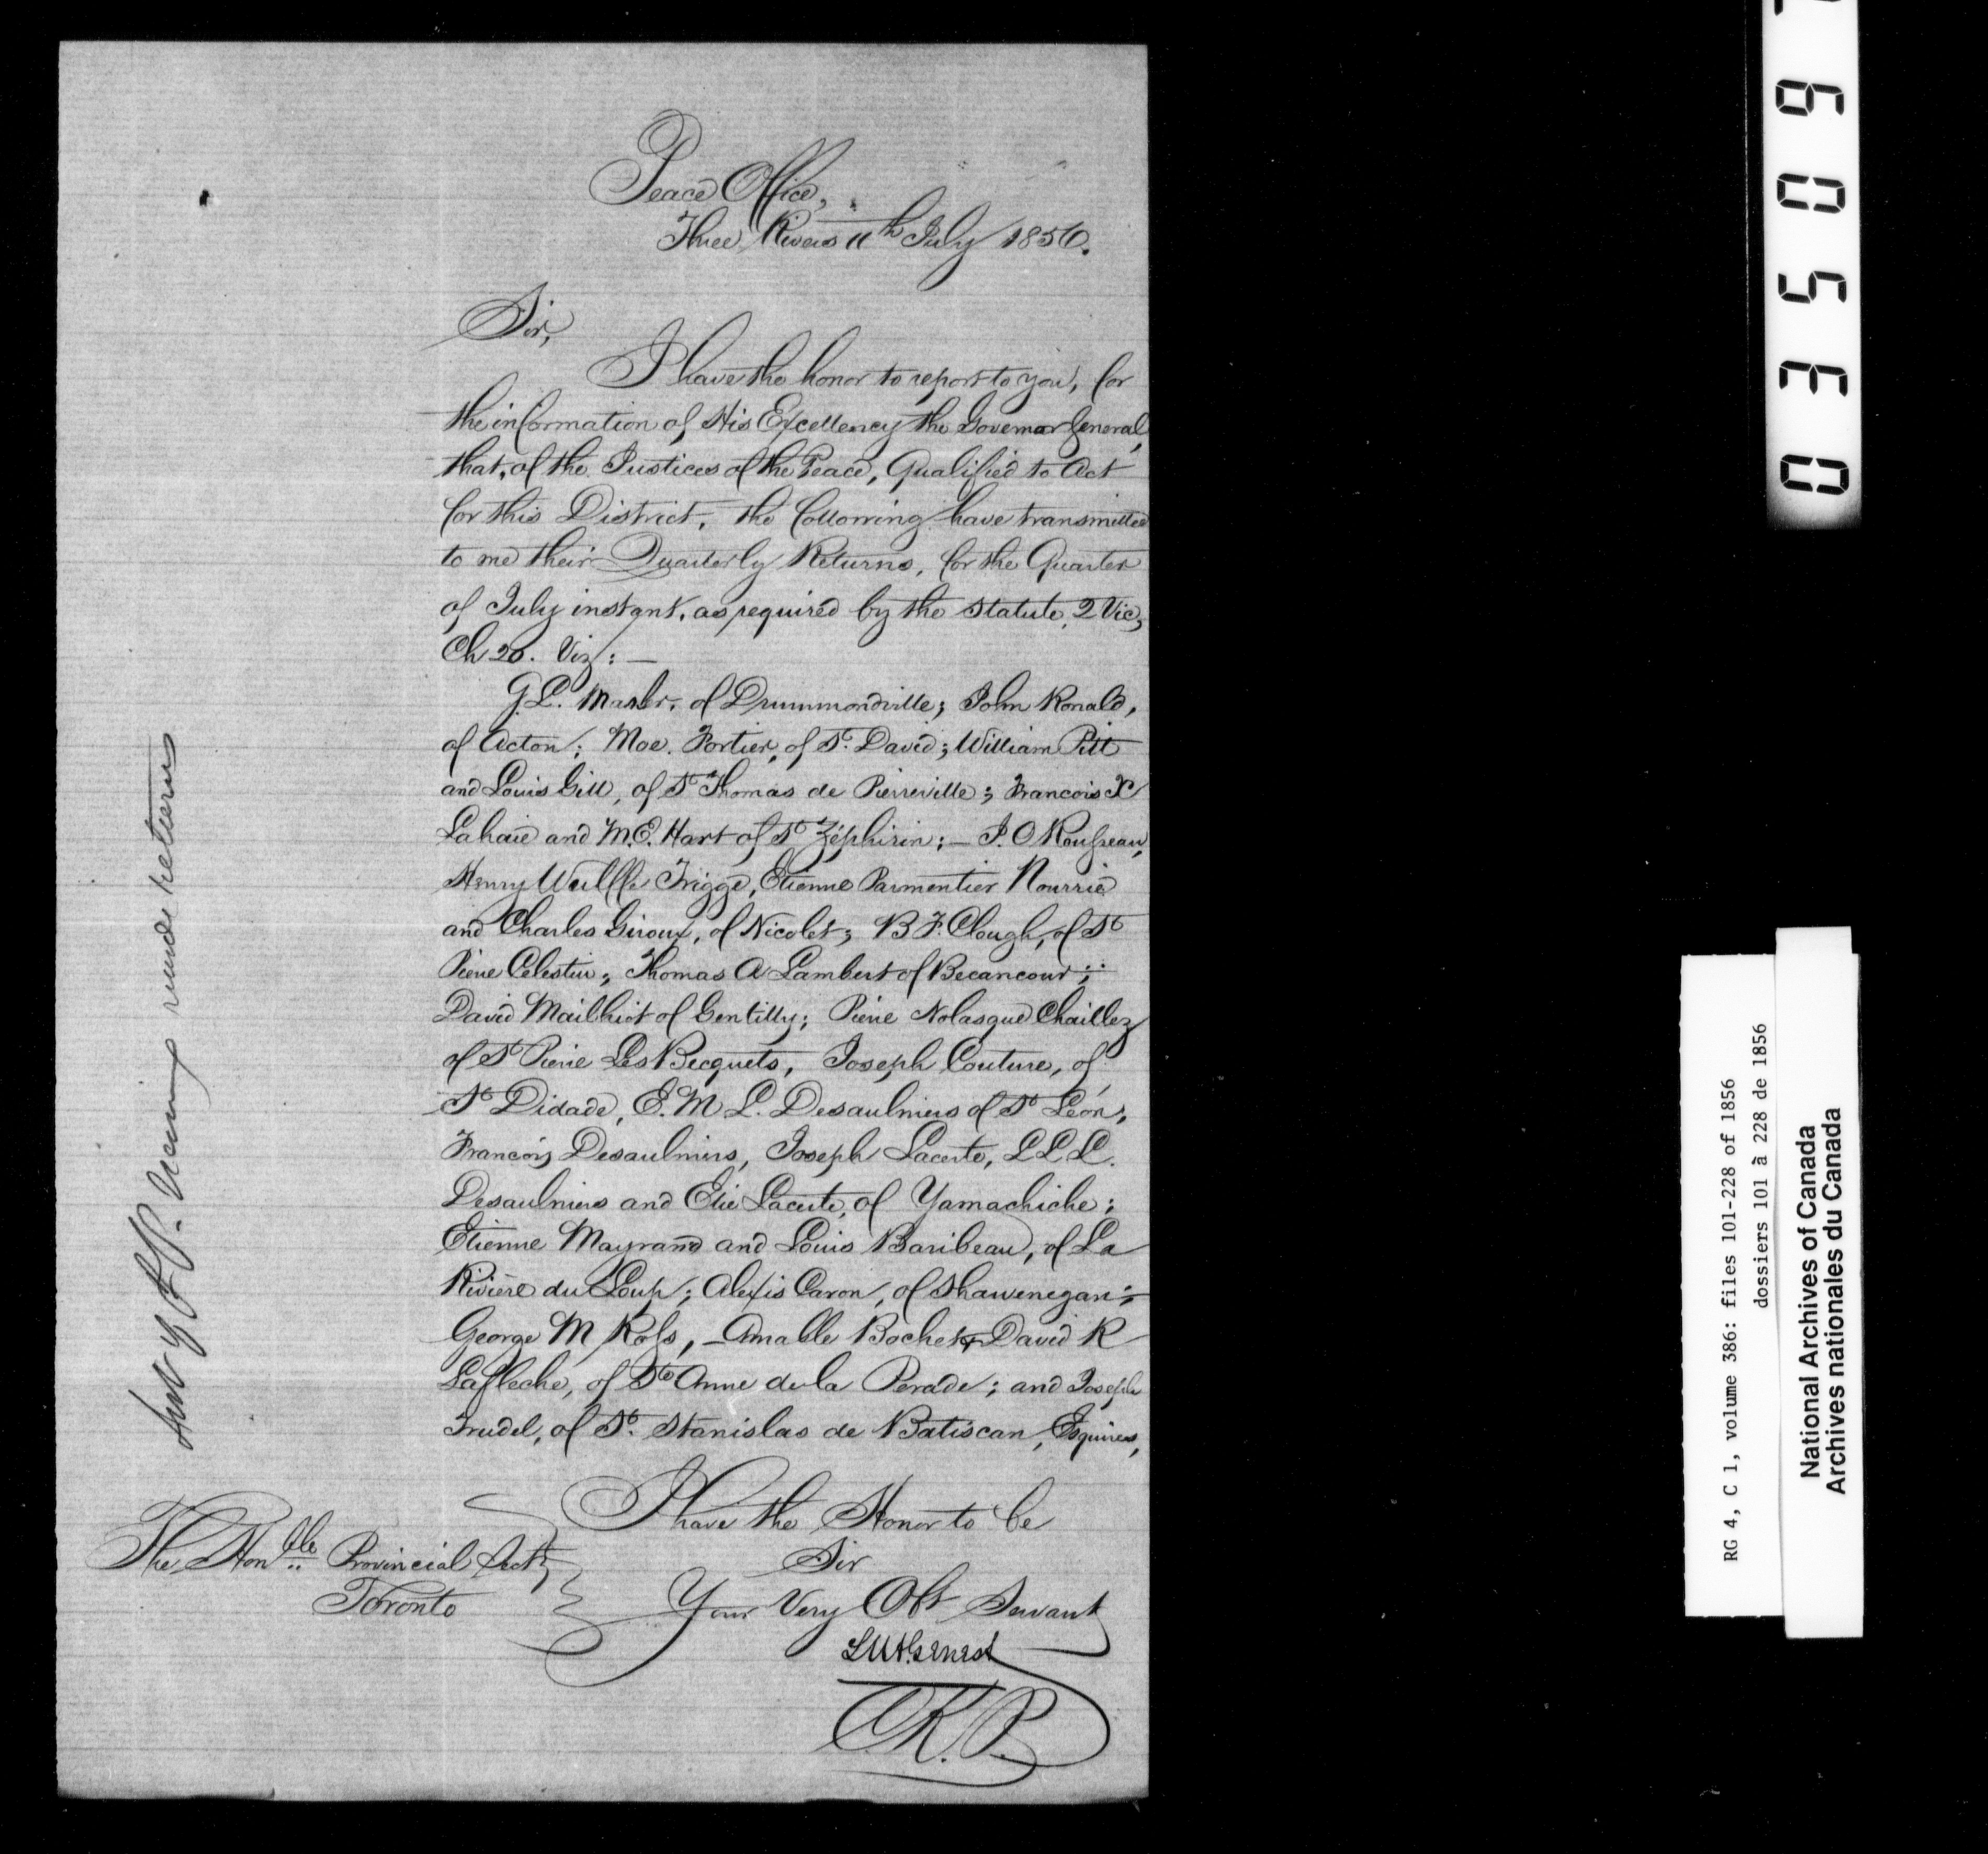 Peace Office,
Three Rivers 11th July 1856.
Sir,
I have the honor to report to you, for
the information of His Excellency the Governor General,
that, of the Justices of the Peace, Qualified to Act
for this District, the following have transmitted
to me their Quarterly Returns, for the Quarter
of July instant, as required by the Statute, 2 Vic,
Ch 20. Viz: —
G.L. Marler, of Drummondville; John Ronald,
of Acton; Moe. Fortier, of St. David; William Pitt
and Louis Gill, of St Thomas de Pierreville; Francois X
Lahaie and M.E. Hart of St Zéphirin; — J. O Rousseau,
Henry Wulffe Trigge, Etienne Parmentier Nourrie
and Charles Giroux, of Nicolet; B F. Clough, of St
Pierre Celestin; Thomas A Lambert of Becancour;
David Mailhiot of Gentilly; Pierre Nolasque Chaillez
of St Pierre Les Becquets, Joseph Couture, of
St Didace, E. M L. Desaulniers of St Léon,
Francois Desaulniers, Joseph Lacerte, L L L.
Desaulniers and Elie Lacerte, of Yamachiche;
Etienne Mayrand and Louis Baribeau, of La
Rivière du Loup; Alexis Caron, of Shawenegan;
George M Ross, — Amable Bochet, David R
Lafleche, of Ste Anne de la Perade; and Joseph
Trudel, of St. Stanislas de Batiscan, Esquires,
I have the Honor to be
Sir
Your Very Obt Servant
The Honble Provincial Secty
Toronto
C.P.
of J.P. made returns
0 3 5 0 9
RG 4, C 1, volume 386: files 101-228 of 1856
dossiers 101 à 228 de 1856
National Archives of Canada
Archives nationales du Canada